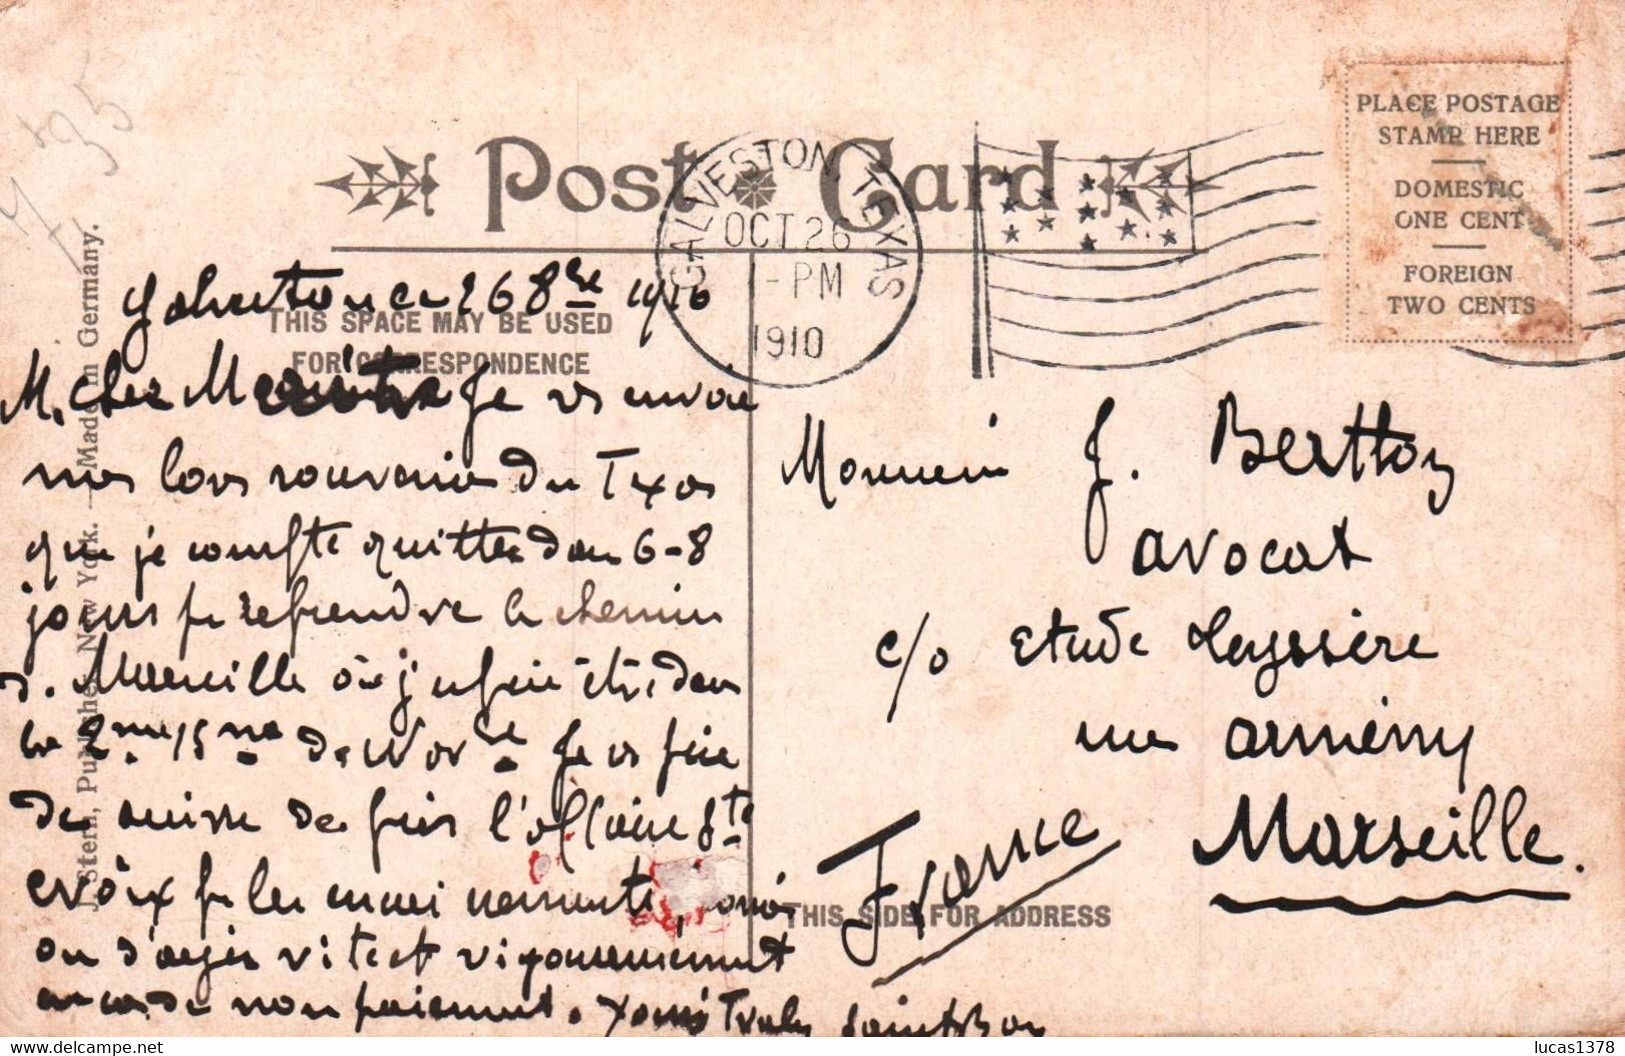 735
Post Card
GALVESTON, TEXAS
OCT 26
1-PM
1910
PLACE POSTAGE
STAMP HERE
DOMESTIC
ONE CENT
FOREIGN
TWO CENTS
J. Stern, Publisher, New York. — Made in Germany.
THIS SPACE MAY BE USED
FOR CORRESPONDENCE
26 8bre 1910
M. cher Je vs envoie
mes bons souvenirs du Texas
que je compte quitter dans 6-8
jours pr reprendre le chemin
de Marseille où j'espère être dans
la 2me 15ne de Novbre. Je vs prie
de suivre de près l'affaire Ste
croix
ou d'agir vite et vigoureusement
en cas de non paiement. Yours Truly
Monsieur J. Bertton
avocat
c/o Etude Leyssière
rue Armény
Marseille.
France
THIS SIDE FOR ADDRESS
lucas1378